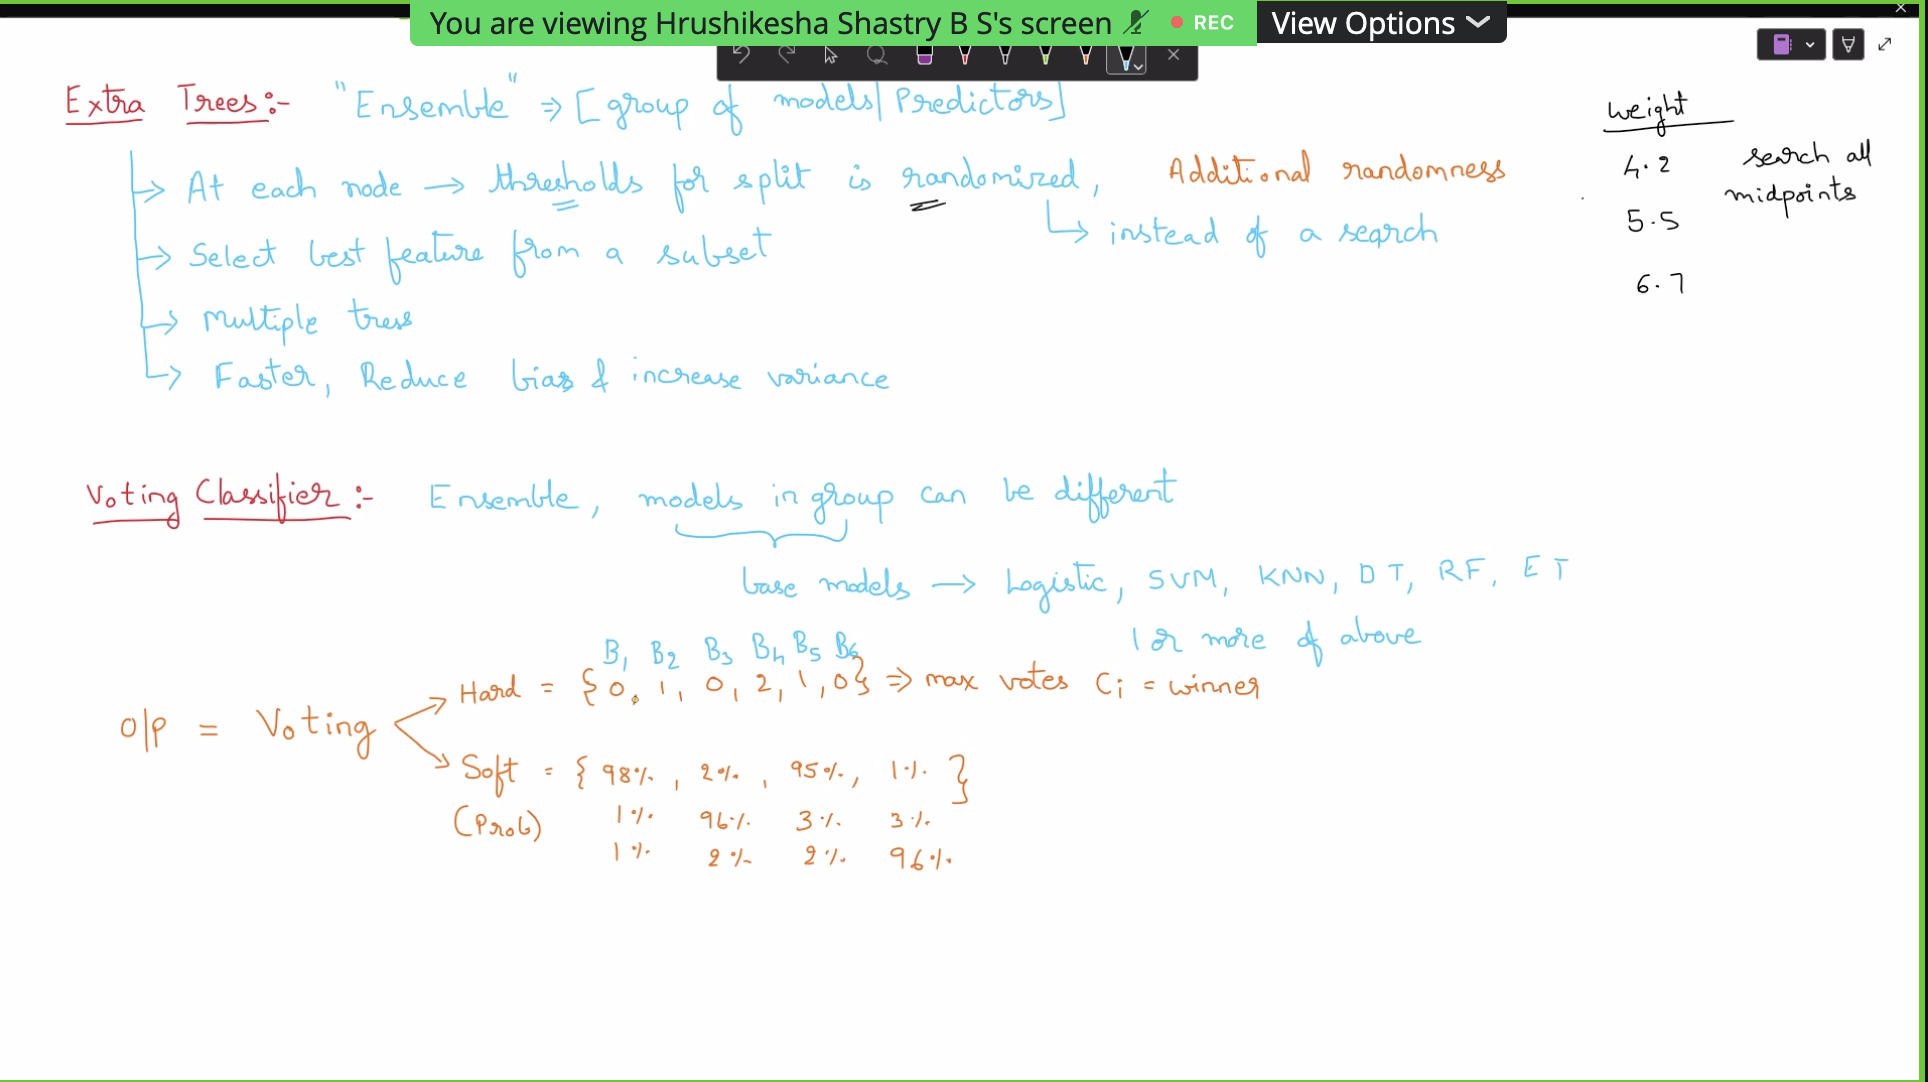 You are viewing Hrushikesha Shastry B S's screen REC View Options
Extra Trees:- "Ensemble" ⇒ [group of models|Predictors]
weight
→ At each node → thresholds for split is randomized, Additional randomness
4.2 search all
midpoints
↳ instead of a search
5.5
→ Select best feature from a subset
6.7
→ Multiple trees
→ Faster, Reduce bias & increase variance
Voting Classifier:- Ensemble, models in group can be different
base models → Logistic, SVM, KNN, DT, RF, ET
1 or more of above
B1 B2 B3 B4 B5 B6
Hard = {0, 1, 0, 2, 1, 0} ⇒ max votes Ci = winner
o/p = Voting
Soft = {98%, 2%, 95%, 1%}
(Prob) 1% 96% 3% 3%
1% 2% 2% 96%